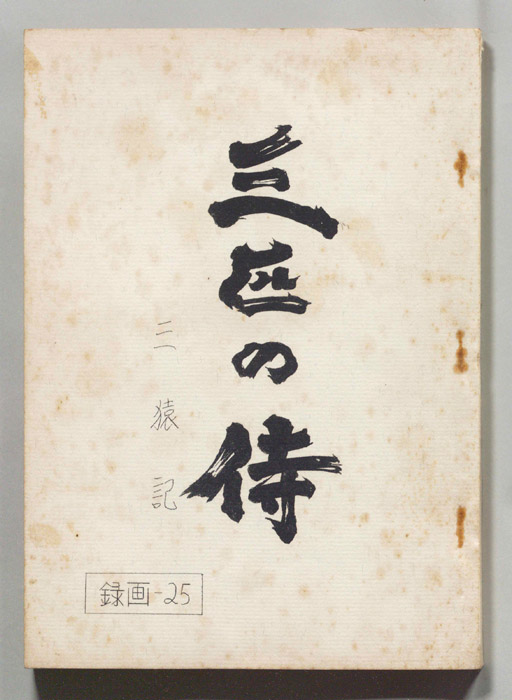 三匹の侍
三猿記
録画-25